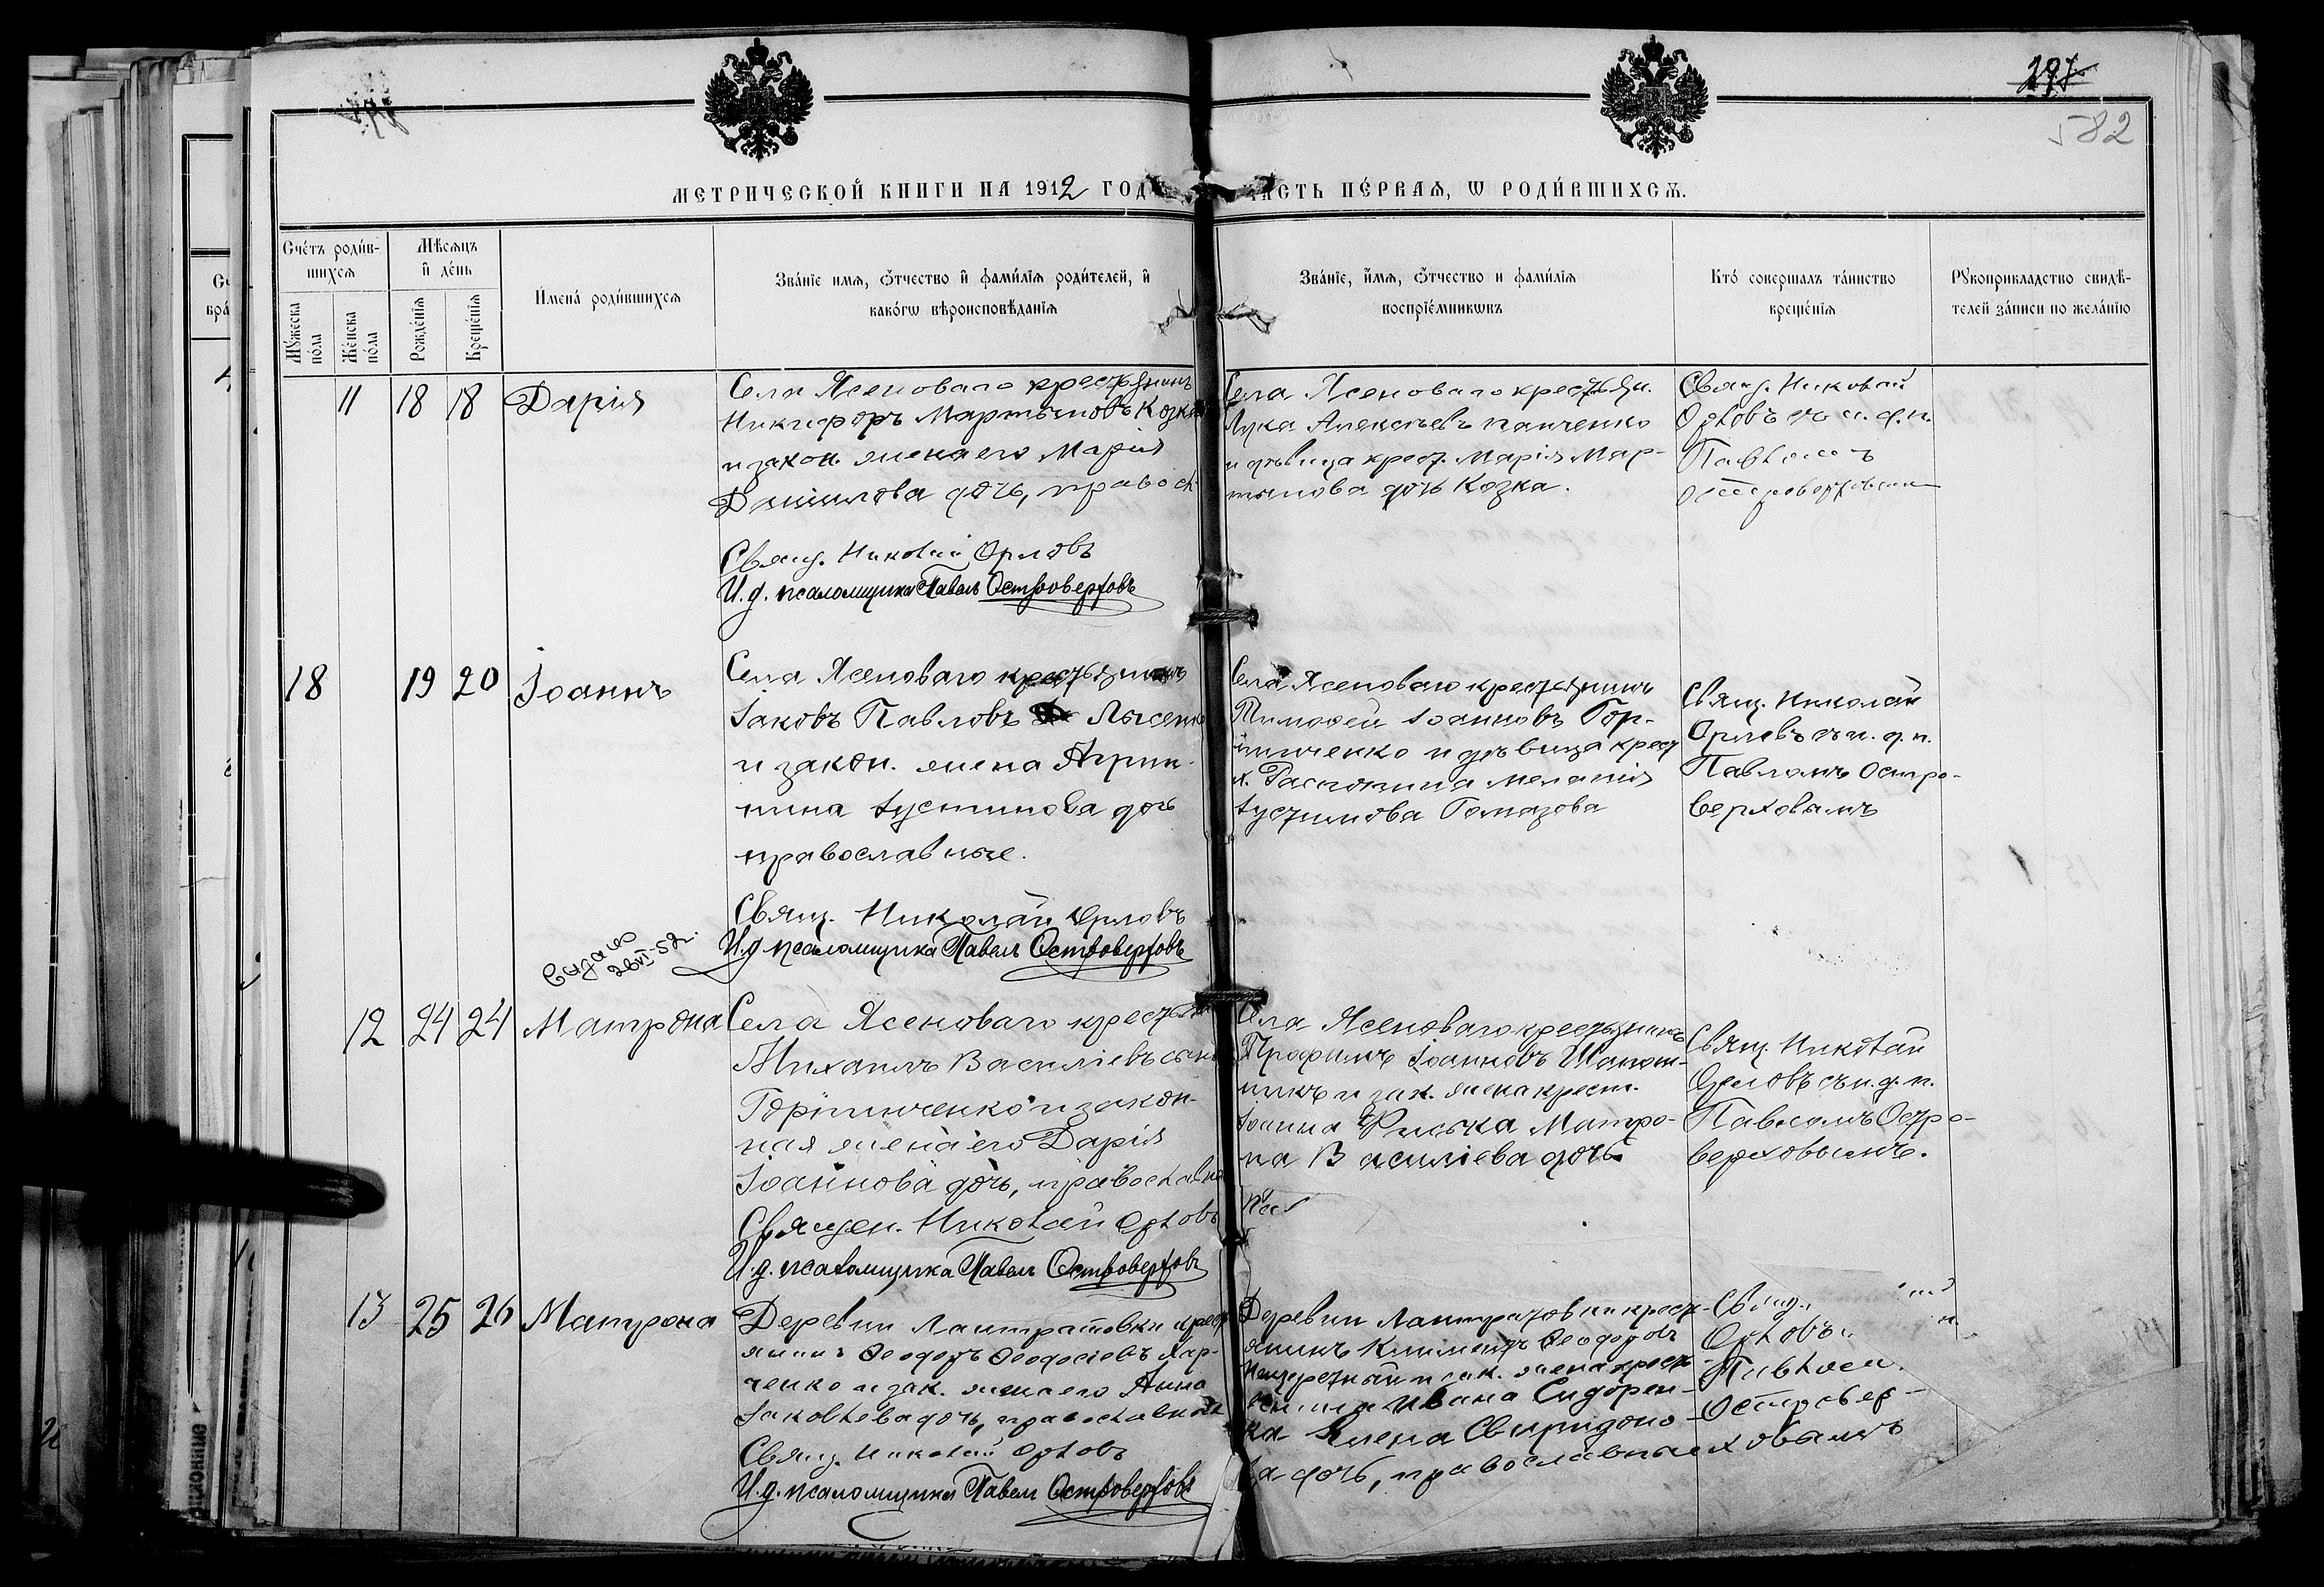 297
582
МЕТРИЧЕСКОЙ КНИГИ НА 1912 ГОД
ЧАСТЬ ПЕ́РВАЯ, Ѡ РОДИ́ВШИХСѦ.
Сче́тъ роди́в-
шихсѧ
Мꙋ́жеска по́ла
Же́нска по́ла
Мѣ́сѧцъ и҆ де́нь
Рожде́нїѧ
Креще́нїѧ
И҆мена̀ роди́вшихсѧ
Зва́нїе имѧ, ѻ҆́тчество и҆ фами́лїѧ роди́телей, и҆
како́гѡ вѣроисповѣ́данїѧ
Зва́нїе, и҆́мѧ, ѻ҆́тчество и фами́лїѧ
воспрїе́мникѡвъ
Кто́ соверша́лъ та́инство
креще́нїѧ
Рꙋкоприкла́дство свидѣ́-
телей за́писи по жела́нїю
11 18 18 Дарія
Села Ясеноваго крестьянинъ
Никифоръ Мартыновъ Козка
и закон. жена его Марія
Даниилова дочь, правосл.
Свящ. Николай Орловъ
И. д. псаломщика Павелъ Островерховъ
Села Ясеноваго крестьян.
Лука Алексѣевъ Панченко
и дѣвица крест. Марія Мар-
тынова дочь Козка.
Свящ. Николай
Орловъ съ и. д. п.
Павломъ
Островерховымъ
18 19 20 Іоаннъ
Села Ясеноваго крестьянинъ
Іаковъ Павловъ Лысенко
и закон. жена Агрип-
пина Іустинова дочь
православные.
Свящ. Николай Орловъ
И. д. псаломщика Павелъ Островерховъ
Села Ясеноваго крестьянинъ
Тимоѳей Іоанновъ Гор-
пинченко и дѣвица крест.
Меланія
Іустинова
Свящ. Николай
Орловъ съ и. д. п.
Павломъ Остро-
верховымъ
Выдано
26 VI-52.
12 24 24 Матрона
Села Ясеноваго крестьян
Михаилъ Василіевъ сынъ
Горпинченко и закон-
ная жена его Дарія
Іоаннова дочь, православн
ые
Священ. Николай Орловъ
И. д. псаломщика Павелъ Островерховъ
Села Ясеноваго крестьянинъ
Трофимъ Іоанновъ Шапош-
никъ и зак. жена крест.
Іоанна Матро-
на Василіева дочь
Свящ. Николай
Орловъ съ и. д. п.
Павломъ Остро-
верховымъ.
13 25 26 Матрона
Деревни Лантратовки крест
янинъ Ѳеодоръ Ѳеодосіевъ Хар-
ченко и зак. жена его Анна
Іаковлева дочь, православные
Свящ. Николай Орловъ
И. д. псаломщика Павелъ Островерховъ
Деревни Лантратовки крест-
янинъ Климентъ Ѳеодоровъ
и зак. жена крест
Ивана Сидорен-
ка Елена Свиридоно-
ва дочь, православные
Свящ.
Орловъ
Павлом.
Островер-
ховымъ